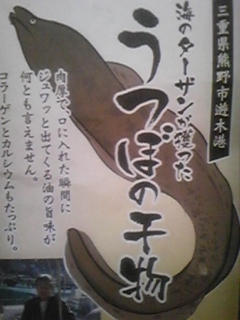 三重県熊野市遊木港
海のターザンが獲った
うつぼの干物
肉厚で、口に入れた瞬間に
ジュワっと出てくる油の旨味が
何とも言えません。
コラーゲンとカルシウムもたっぷり。